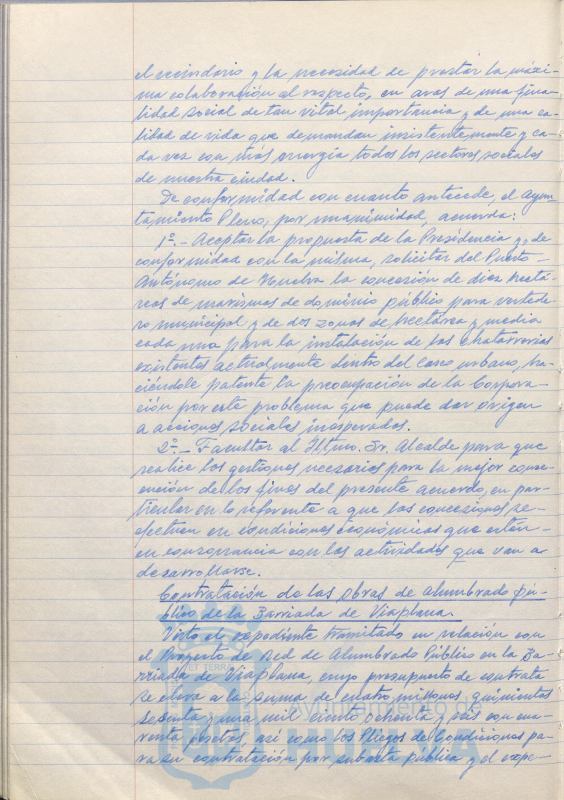 el vecindario y la necesidad de prestar la máxi-
ma colaboración al respecto, en aras de una fina-
lidad social de tan vital importancia y de una ca-
lidad de vida que demandan insistentemente y ca-
da vez con más energía todos los sectores sociales
de nuestra ciudad.
De conformidad con cuanto antecede, el Ayun-
tamiento Pleno, por unanimidad, acuerda:
1º.- Aceptar la propuesta de la Presidencia y, de
conformidad con la misma, solicitar del Puerto
Autónomo de Huelva la concesión de diez hectá-
reas de marismas de dominio público para vertede-
ro municipal y de dos zonas de hectárea y media
cada una para la instalación de las chatarrerías
existentes actualmente dentro del casco urbano, ha-
ciéndole patente la preocupación de la Corpora-
ción por este problema que puede dar origen
a acciones sociales inesperadas.
2º.- Facultar al Iltmo. Sr. Alcalde para que
realice las gestiones necesarias para la mejor conse-
cución de los fines del presente acuerdo, en par-
ticular en lo referente a que las concesiones se
efectuen en condiciones económicas que estén
en consonancia con las actividades que van a
desarrollarse.
Contratación de las obras de alumbrado pú-
blico de la Barriada de Viaplana.
Visto el expediente tramitado en relación con
el Proyecto de Red de Alumbrado Público en la Ba-
rriada de Viaplana, cuyo presupuesto de contrata
se eleva a la suma de cuatro millones, quinientas
sesenta y una mil ciento ochenta y seis con cua-
renta pesetas, así como los Pliegos de Condiciones pa-
ra su contratación por subasta pública y el expe-
ET TERRÆ
Ayuntamiento de
HUELVA